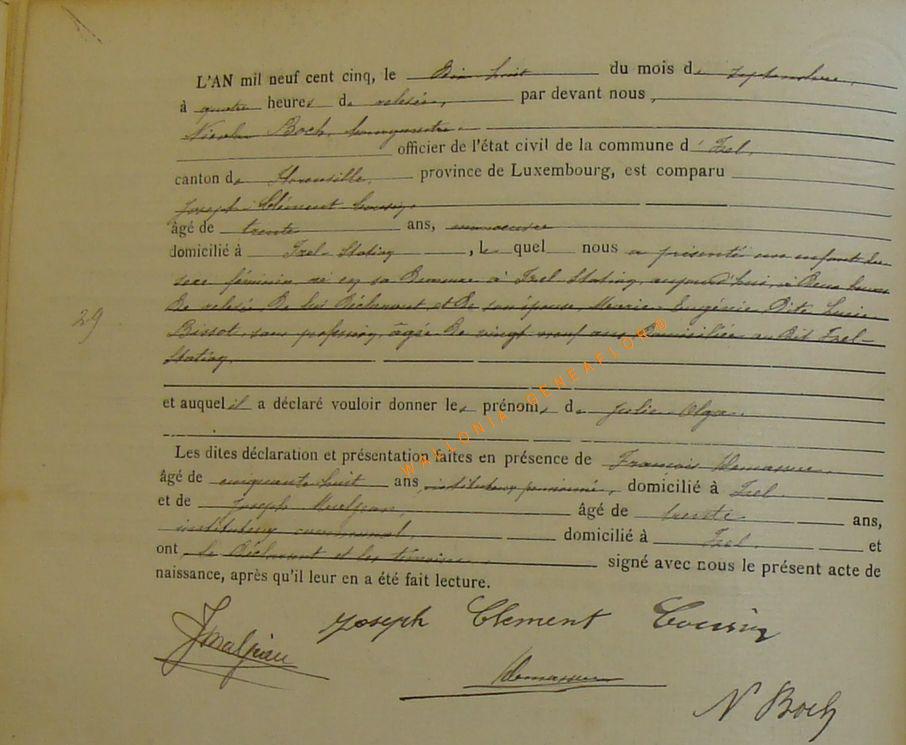 L'AN mil neuf cent cinq, le Dix huit du mois de septembre,
à quatre heures de relevée, par devant nous,
Nicolas Boch, bourgmestre
officier de l'état civil de la commune d' Izel
canton de Florenville, province de Luxembourg, est comparu
Joseph Clément Cousin,
âgé de trente ans,
domicilié à Izel-Station, lequel nous a présenté un enfant du
sexe féminin, né en sa Demeure à Izel Station, aujourd'hui, à Deux heures
De relevée, De lui Déclarant, et De son épouse, Marie, Eugénie, Dite Lucie
Bissot, sans profession, âgée De vingt neuf ans Domiciliée au Dit Izel-
Station,
29
et auquel il a déclaré vouloir donner les prénoms de Julia Olga.
Les dites déclaration et présentation faites en présence de François Demasure,
âgé de cinquante huit ans, instituteur pensionné, domicilié à Izel
et de Joseph âgé de trente ans,
instituteur communal, domicilié à Izel et
ont le Déclarant et les témoins signé avec nous le présent acte de
naissance, après qu'il leur en a été fait lecture.
Joseph Clement Cousin
N Boch
WALLONIA - GENEAFLOR®